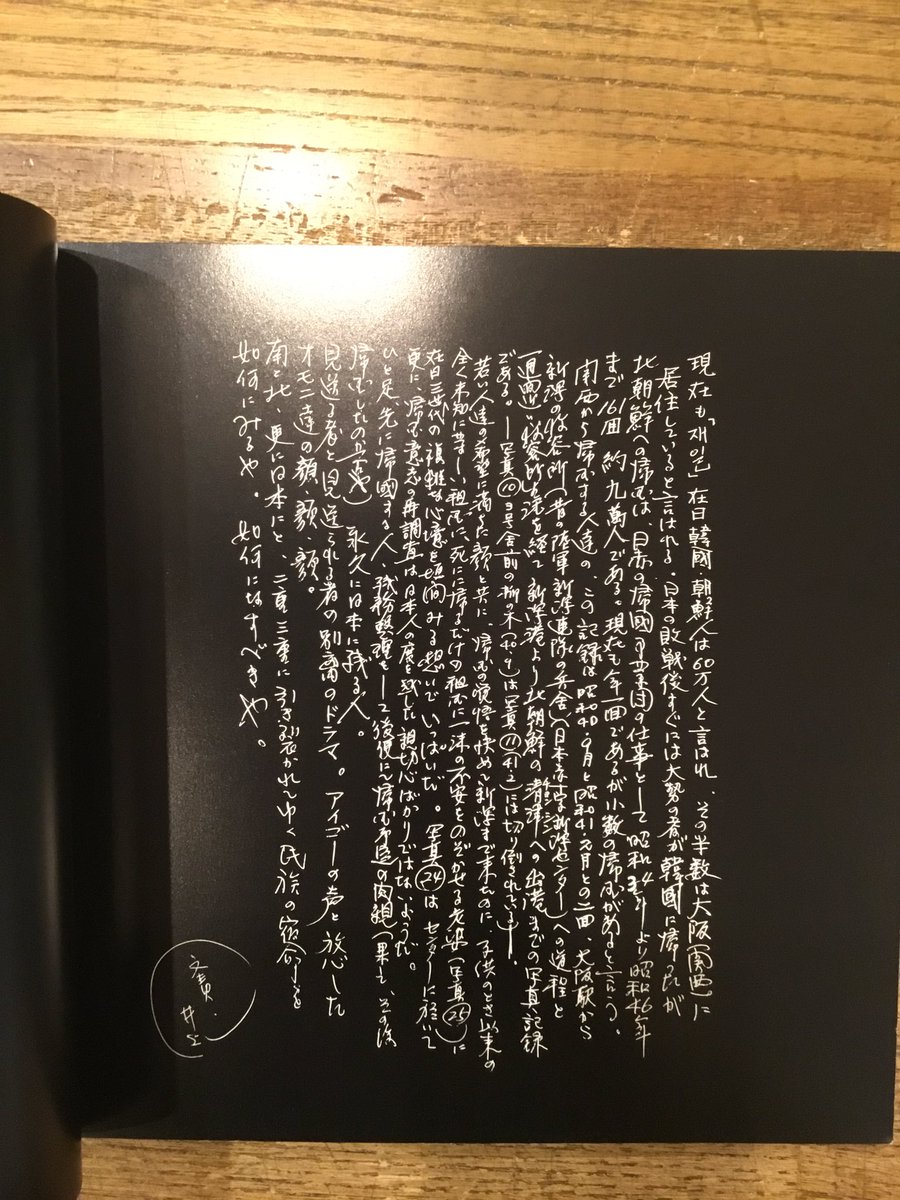 現在も「재일」在日韓國・朝鮮人は60万人と言はれ、その半数は大阪(関西)に
居住していると言はれる。日本の敗戦後すぐには大勢の者が韓國に帰ったが
北朝鮮への帰国は、日赤の帰國の仕事として昭和より昭和46年
まで161回 約九萬人である。現在も年一回であるが小数の帰国があると言う。
関西から帰国する人達の、この記録は昭和40.9月と昭和41.2月との二回、大阪駅から
新潟の収容所(昔の陸軍新潟連隊の兵舎)(日本赤十字新潟センター)への道程と
一週間の収容所生活を経て新潟港より北朝鮮の清津への出港までの写真記録
である。―写真⑩3号舎前の柳の木(40.9)は写真⑪(41.2)には切り倒されている―。
若い人達の希望に満ちた顔と共に、帰国の覚悟を決めて新潟まで来たのに 子供のとき以来の
全く未知に等しい祖国に、死にに帰るだけの祖国に一沫の不安をのぞかせる老婆(写真㉕)に
在日三世代の複雑な心境を垣間みる想いでいっぱいだ。写真㉔はセンターに於いて
更に、帰国意志の再調査は日本人の度を越した親切心ばかりではないようだ。
ひと足先に帰國する人、残務整理をして後便にて帰国予定の肉親(果して、その後
帰国したのか) 永久に日本に残る人。
見送る者と見送られる者の別離のドラマ。アイゴーの声と放心した
オモニ達の顔、顔、顔。
南と北、更に日本にと、二重三重に引き裂かれてゆく民族の宿命を
如何にみるや。如何になすべきや。